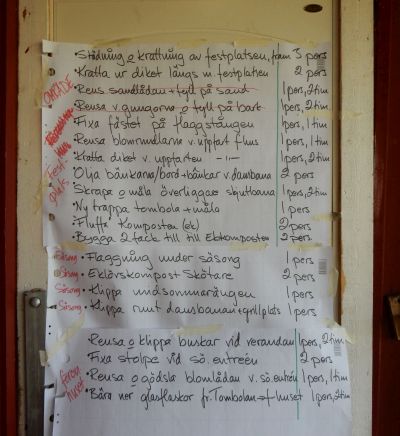 • Städning o krattning av festplatsen, fram 3 pers
• Kratta ur diket längs m. festplatsen 2 pers
OMRÅDE • Rens sandlådan + fyll på sand 1 pers, 2 tim
• Rensa v. gungorna o fyll på bark 1 pers, 2 tim
• Fixa fästet på flaggstången 1 pers, 1 tim
• Rensa blomrundlarna v. uppfart f-hus 1 pers, 1 tim
• Kratta diket v. uppfarten - " - 1 pers, 2 tim
Fest- • Olja bänkarna/bord + bänkar v. dansbana 2 pers
plats • Skrapa o måla överliggare skjutbana 1 pers, 2 tim
• Ny trappa tombola + måla 1 pers
• Fluffa Komposten (ek) 2 pers
• Bygga 2 fack till till Ekkomposten 2 pers
Säsong • Flaggning under säsong 1 pers
Säsong • Eklövskompost Skötare 2 pers
Säsong • Klippa midsommarängen 1 pers
Säsong • Klippa runt dansbanan + grillplats 1 pers
Rensa o klippa buskar vid verandan 1 pers, 2 tim
Fixa stolpe vid sö. entrén 2 pers
• Rensa o gödsla blomlådan v. sö. entrén 1 pers, 1 tim
huset • Bära ner glasflaskor fr. Tombolan → f-huset 1 pers, 2 tim